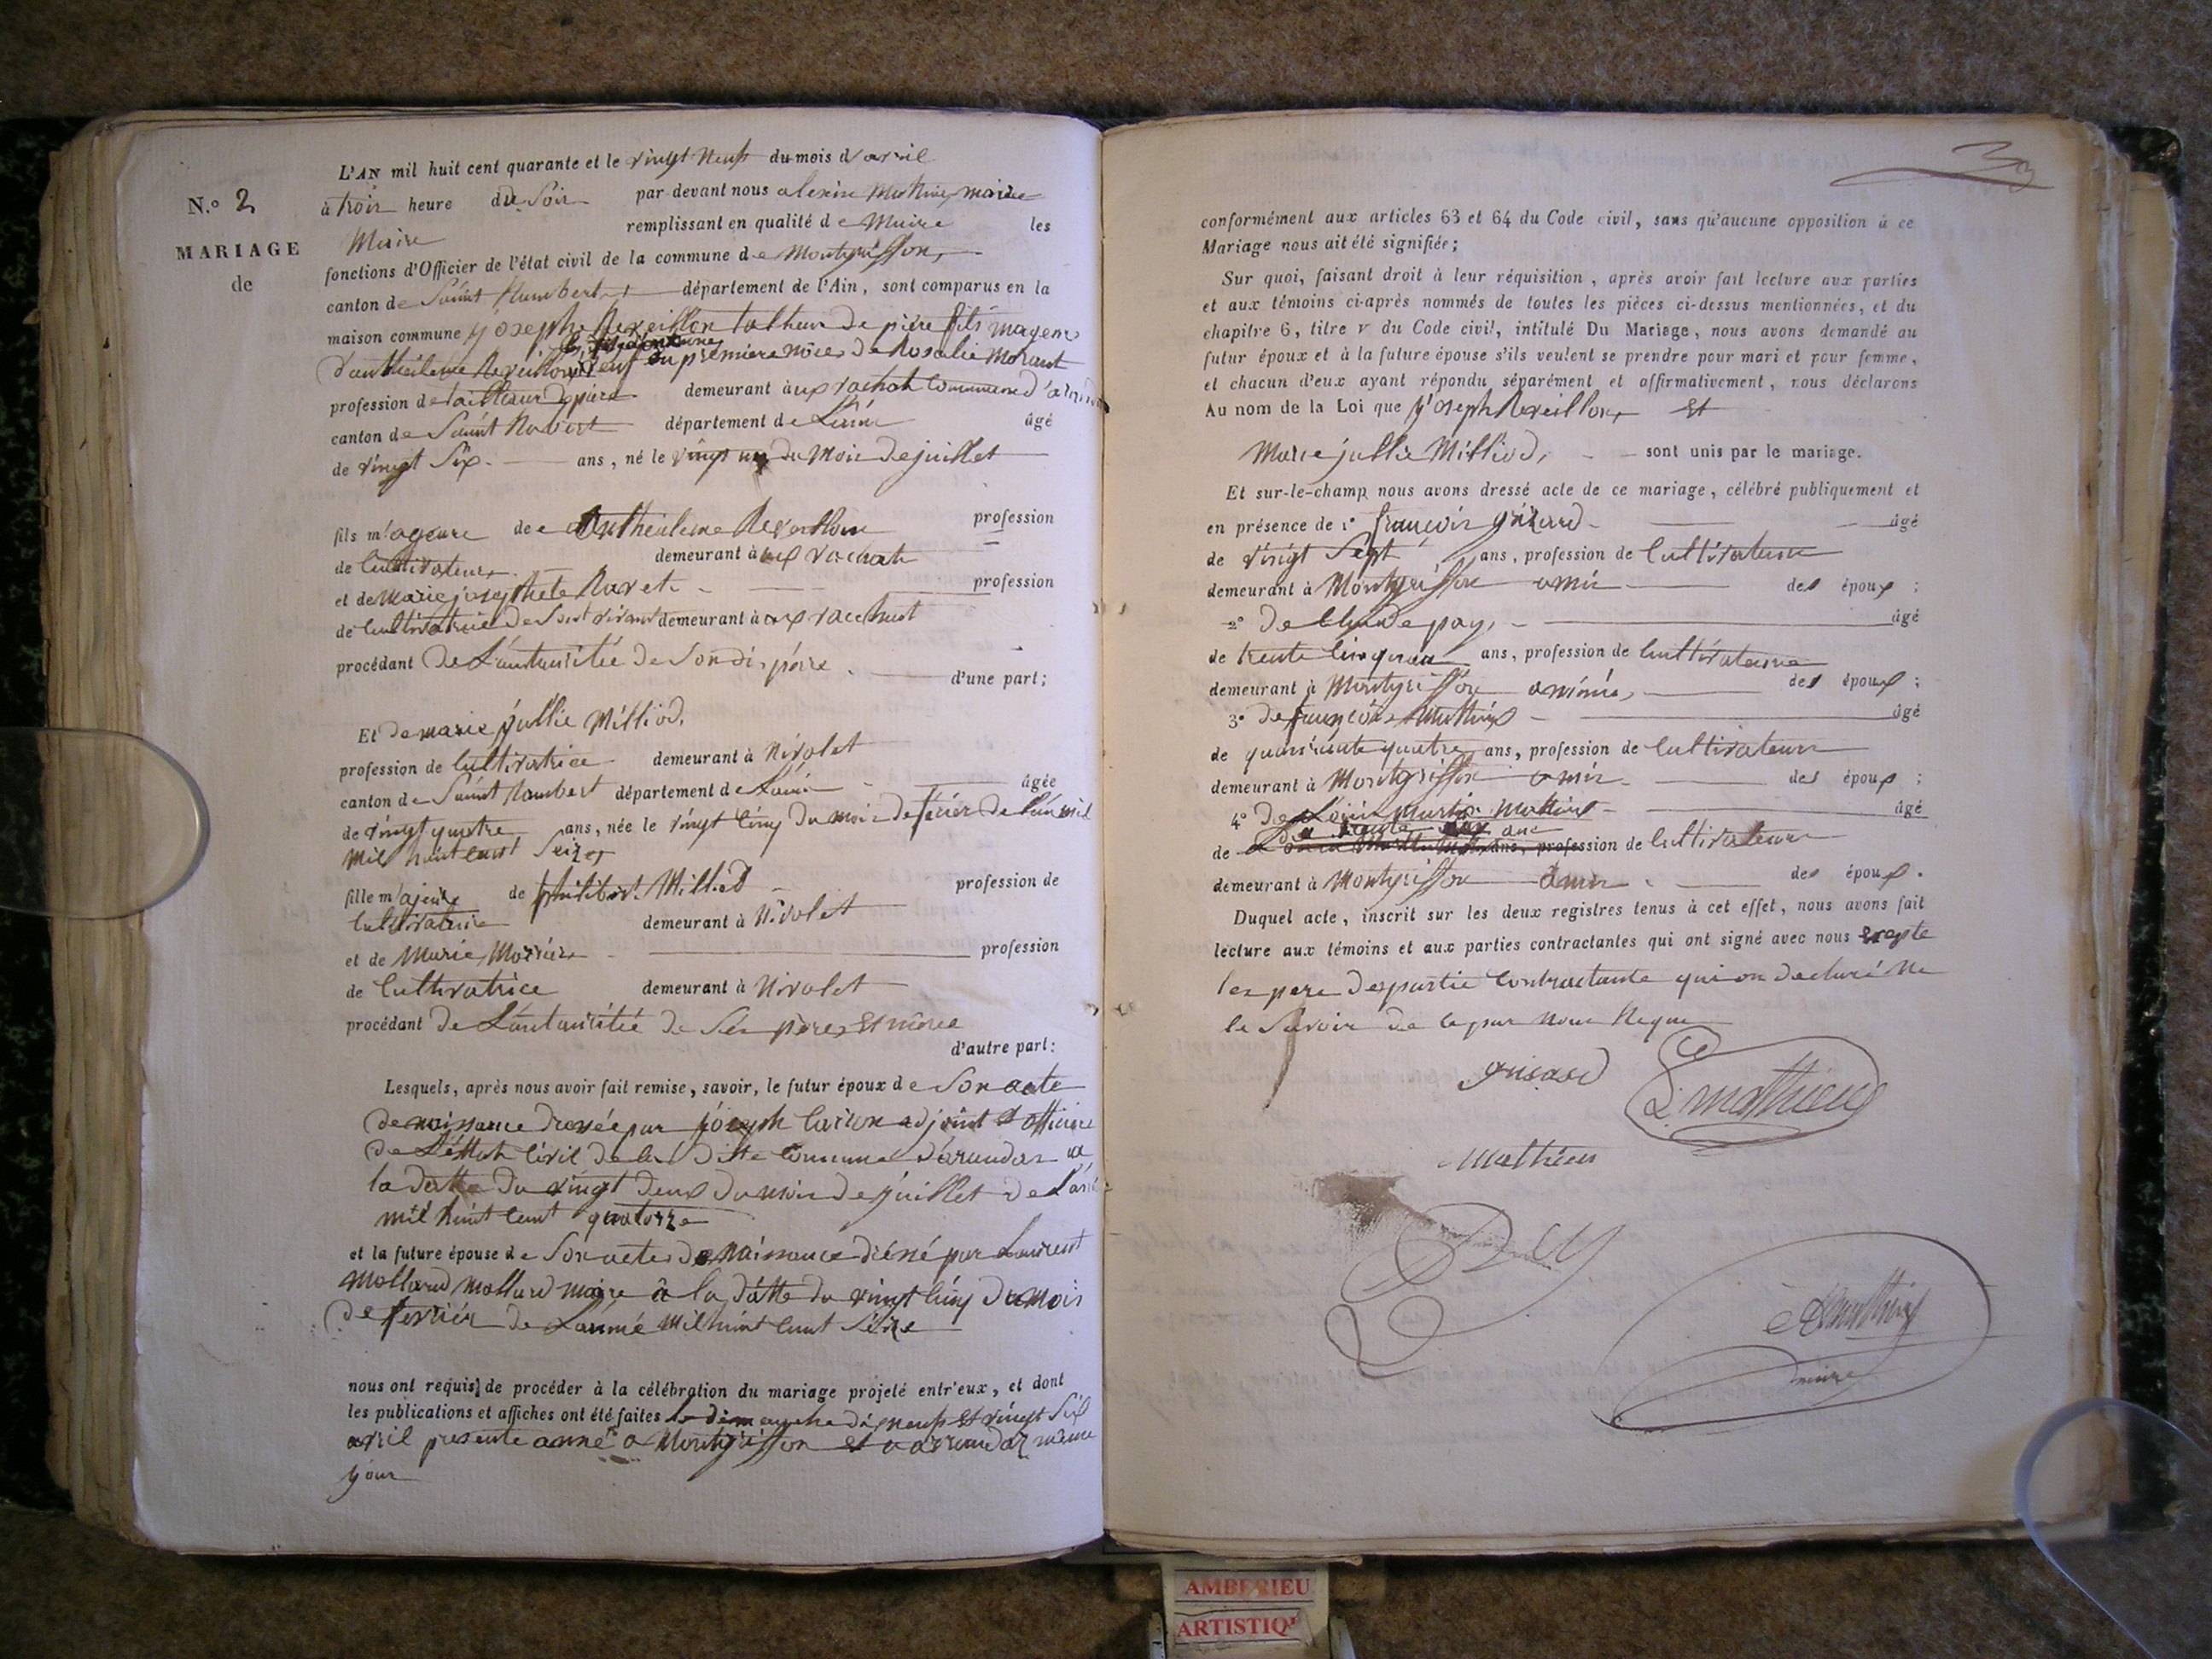 N.° 2
MARIAGE
de
L'AN mil huit cent quarante et le vingt neuf du mois d avril
à troi heure du Soir par-devant nous alexin Mathieu maire
Maire remplissant en qualité de Maire les
fonctions d'Officier de l'état civil de la commune de Montgriffon,
canton de Saint Rambert département de l'Ain, sont comparus en la
maison commune Joseph Reveillon talheur de piere fils mageure
d'anthéleme Reveillon veuf en premiere noces de Rosalie Morant
profession de tailleur de piere demeurant à ux rachat commune d'
canton de Saint Rabert département de Lain âgé
de vingt Six ans, né le vingt un du Mois de juillet
fils mageure de Antheuleme Reveillon profession
de Cultivateur demeurant à ux rachat
et de Marie josephete Ravet profession
de cultivatrice de Son vivant demeurant à ux racchat
procédant de L'autaurités de Son di père d'une part;
Et de marie jullie Milliod,
profession de Cultivatrice demeurant à Nivolet
canton de Saint Rambert département de Lain âgée
de vingt quatre ans, née le vingt cinq du mois de février de l'an mil
mil huit cent Seize
fille majeure de philibert Milliod profession de
Cultivateure demeurant à Nivolet
et de Marie profession
de Cultivatrice demeurant à Nivolet
procédant de L'autauritée de Ses père, et mère
d'autre part:
Lesquels, après nous avoir fait remise, savoir, le futur époux de Son acte
de naissance dressée par joseph Carron adjoint officier
de L'éttat Civil de la ditte Commune d'arandas a
la datte du vingt deux du mois de juillet de l'an
mil huit cent quatorze
et la future épouse de Son acte de Naissance par Laurent
Mollard Mollard maire à la datte du vingt cinq du mois
de fevrier de L'année mil huit cent Seize
nous ont requis de procéder à la célébration du mariage projeté entr'eux, et dont
les publications et affiches ont été faites le dimanche dix neuf et vingt Six
avril presente année a Montgriffon et a arrandaz même
jour
conformément aux articles 63 et 64 du Code civil, sans qu'aucune opposition à ce
Mariage nous ait été signifiée;
Sur quoi, faisant droit à leur réquisition, après avoir fait lecture aux parties
et aux témoins ci-après nommés de toutes les pièces ci-dessus mentionnées, et du
chapitre 6, titre v du Code civil, intitulé Du Mariage, nous avons demandé au
futur époux et à la future épouse s'ils veulent se prendre pour mari et pour femme,
et chacun d'eux ayant répondu séparément et affirmativement, nous déclarons
Au nom de la Loi que Joseph Reveillon, et
Marie jullie Milliod, sont unis par le mariage.
Et sur-le-champ nous avons dressé acte de ce mariage, célébré publiquement et
en présence de 1° françois grizard âgé
de vingt Sept ans, profession de Cultivateur
demeurant à Montgriffon amis des époux;
2° de Claude pay, âgé
de trente cinq ans, profession de Cultivateure
demeurant à Montgriffon amis, des époux;
3° de françois Mathieu âgé
de quarante quatre ans, profession de Cultivateur
demeurant à Montgriffon amis des époux;
4° de Louis Mathieu âgé
de ans, profession de Cultivateur
demeurant à Montgriffon amis des époux.
Duquel acte, inscrit sur les deux registres tenus à cet effet, nous avons fait
lecture aux témoins et aux parties contractantes qui ont signé avec nous exepte
les pere des partie Contractante qui on declaré ne
le Savoir de ce par nous Requi
grisard
L. mathieu
Mathieu
A Mathieu
maire
AMBERIEU
ARTISTIQ